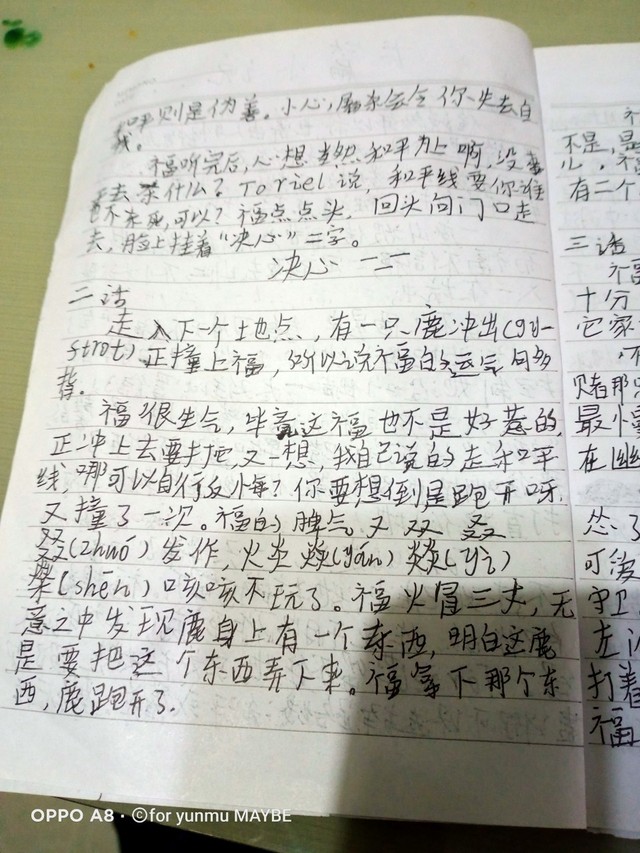 和平则是伪善。小心,屠杀会令你失去自
我。
福听完后,心想当然和平为上啊,没事
去杀什么?Toriel说,和平线要你谁
也不杀死,可以?福点点头,回头向门口走
去,脸上挂着“决心”二字。
决心 二
二话
走入下一个地点,有一只鹿冲出(gy-
ftrot),正撞上福,所以说福的运气
背。
福很生气,毕竟这福也不是好惹的,
正冲上去要打他,又一想,我自己说的走和平
线,哪可以自行反悔?你要想倒是跑开呀,
又撞了一次。福的脾气又双叒
叕(zhuó)发作,火炎焱(yàn)燚(yì)
燊(shēn)咳咳不玩了。福火冒三丈,无
意之中发现鹿身上有一个东西,明白这鹿
是要把这个东西弄下来。福拿下那个东
西,鹿跑开了。
不是,是
心。福
有二个
三话
福
十分
它家
赌那只
最小
在幽
怂了
可没
守卫
左
打着
福
OPPO A8 · ©for yunmu MAYBE